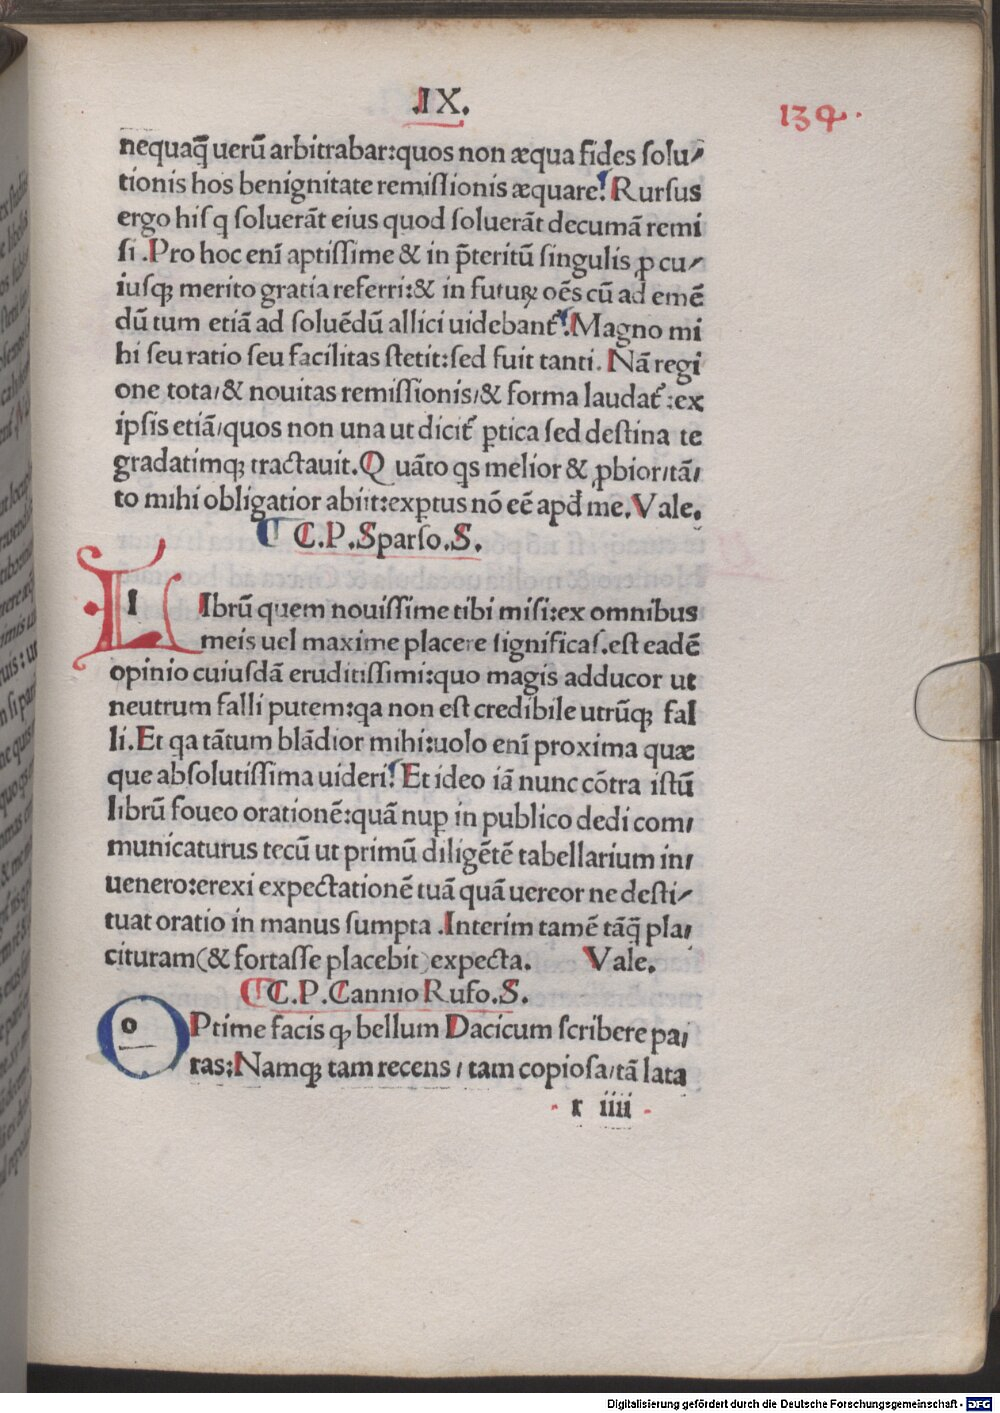 .IX.
134.
nequaq̃ uerũ arbitrabar:quos non æqua fides ſolu⸗
tionis hos benignitate remiſſionis æquare! Rurſus
ergo hiſ q ſoluerãt eius quod ſoluerãt decumã remi
ſi .Pro hoc enĩ aptiſſime & in p̃teritũ ſingulis ꝓ cu⸗
iuſqꝫ merito gratia referri:& in futuꝝ oẽs cũ ad emẽ
dũ tum etiã ad ſoluẽdũ allici uidebant᷑.Magno mi
hi ſeu ratio ſeu facilitas ſtetit:ſed fuit tanti. Nã regi
one tota/& nouitas remiſſionis/& forma laudat᷑ :ex
ipſis etiã/quos non una ut dicit᷑ ꝑtica ſed deſtina te
gradatimqꝫ tractauit.Q uãto qs melior & ꝓbior/tã/
to mihi obligatior abiit:exꝑtus nõ eẽ apđ me.Vale.
C.P.Sparſo.S.
L
I Ibrũ quem nouiſſime tibi miſi:ex omnibus
meis uel maxime placere ſignificaſ.eſt eadẽ
opinio cuiuſdã eruditiſſimi:quo magis adducor ut
neutrum falli putem:qa non eſt credibile utrũqꝫ fal
li.Et qa tãtum blãdior mihi:uolo enĩ proxima quæ
que abſolutiſſima uideri! Et ideo iã nunc cõtra iſtũ
librũ foueo orationẽ:quã nuꝑ in publico dedi com/
municaturus tecũ ut primũ diligẽtẽ tabellarium in/
uenero:erexi expectationẽ tuã quã uereor ne deſti⸗
tuat oratio in manus ſumpta .Interim tamẽ tãq̃ pla/
cituram(& fortaſſe placebit)expecta. Vale.
C.P.Cannio Rufo.S.
o Ptime facis ꝙ bellum Dacicum ſcribere pa/
ras:Namqꝫ tam recens / tam copioſa/tã lata
r iiii
Digitalisierung gefördert durch die Deutsche Forschungsgemeinschaft - DFG